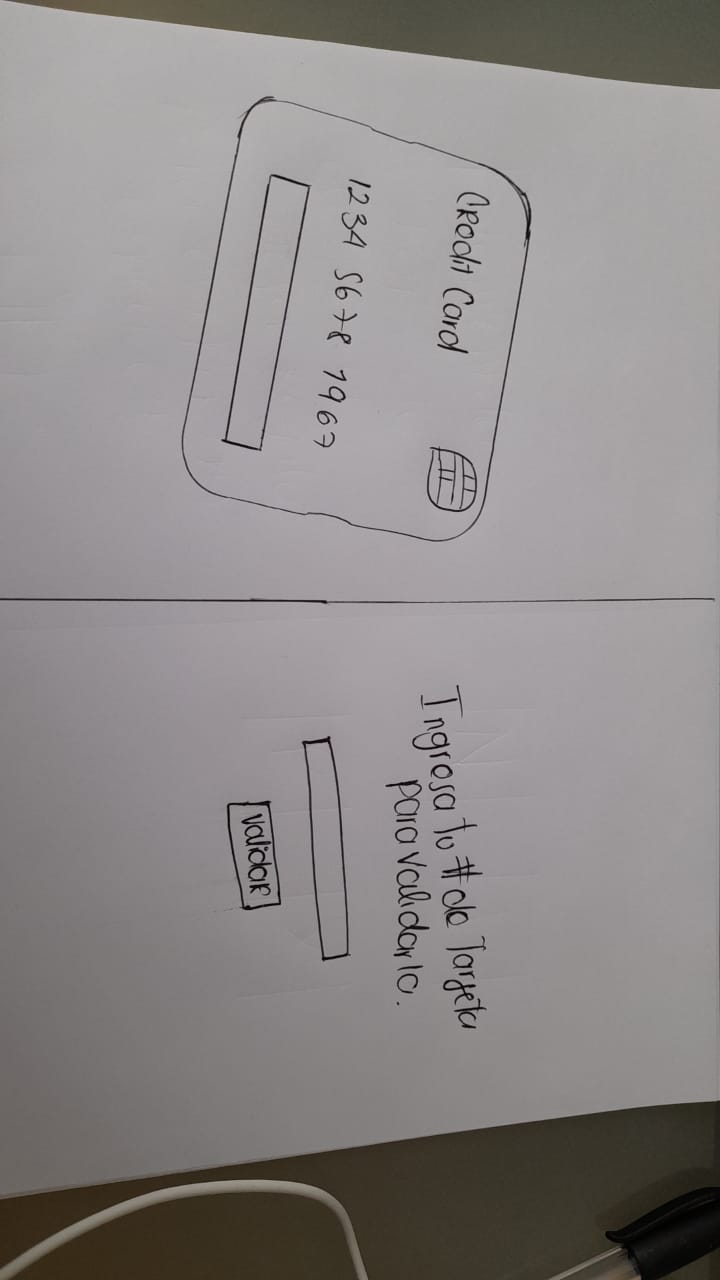 Credit Card
1234 5678 1967
Ingresa tu # de Tarjeta
para validarla.
validar